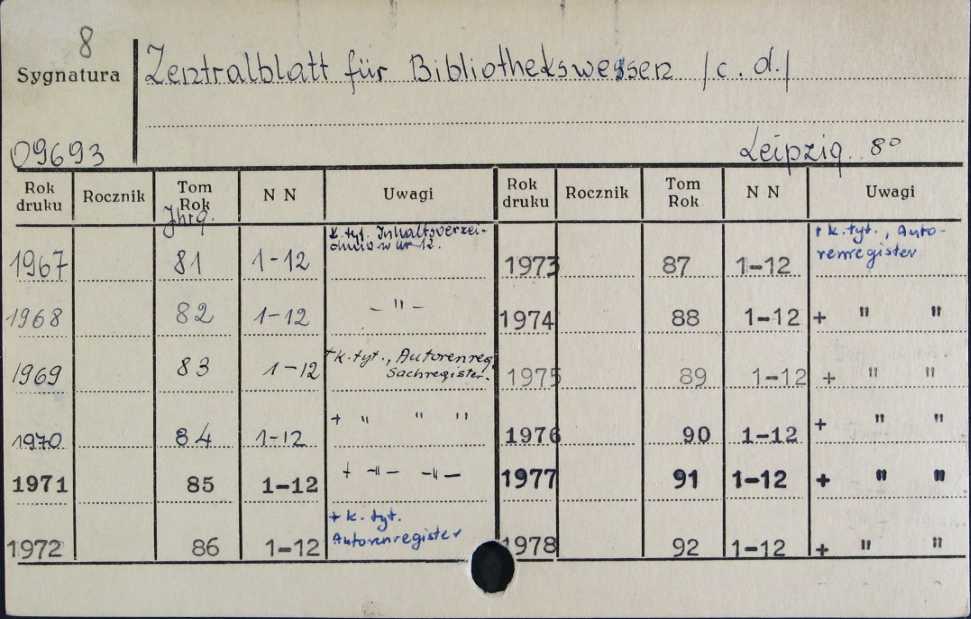 8
Sygnatura Zentralblatt für Bibliothekswesen /c. d./
09693 Leipzig. 8°
Rok druku Rocznik Tom Rok N N Uwagi Rok druku Rocznik Tom Rok N N Uwagi
Jhrg.
1967 81 1-12 k. tyt. Inhaltsverzei- 1973 87 1-12 + k. tyt., Auto-
w nr 12. renregister
1968 82 1-12 - " - 1974 88 1-12 + " "
1969 83 1-12 + k. tyt., Autorenreg. 1975 89 1-12 + " "
Sachregister.
1970 84 1-12 + " " " 1976 90 1-12 + " "
1971 85 1-12 + -"- -"- 1977 91 1-12 + " "
1972 86 1-12 + k. tyt. 1978 92 1-12 + " "
Autorenregister